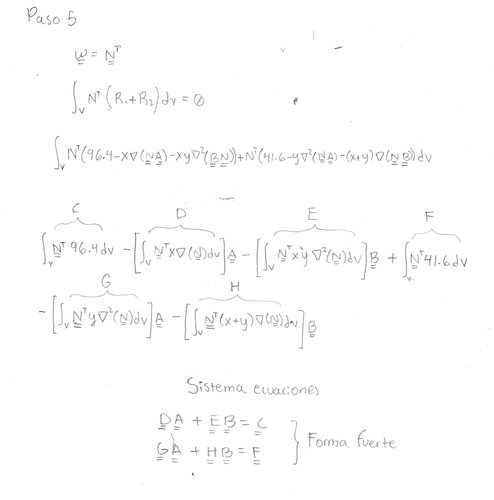 Paso 5
w = Nᵀ
∫ᵥ Nᵀ(R₁+R₂)dv = 0
∫ᵥ Nᵀ(96.4-x∇(NA)-xy∇²(BN))+Nᵀ(41.6-y∇²(NA)-(x+y)∇(NB))dv
C D E F
∫ᵥ Nᵀ96.4dv - [∫ᵥ Nᵀx∇(N)dv]A - [∫ᵥ Nᵀxy∇²(N)dv]B + ∫ᵥ Nᵀ41.6dv
G H
- [∫ᵥ Nᵀy∇²(N)dv]A - [∫ᵥ Nᵀ(x+y)∇(N)dv]B
Sistema ecuaciones
DA + EB = C
GA + HB = F } Forma fuerte